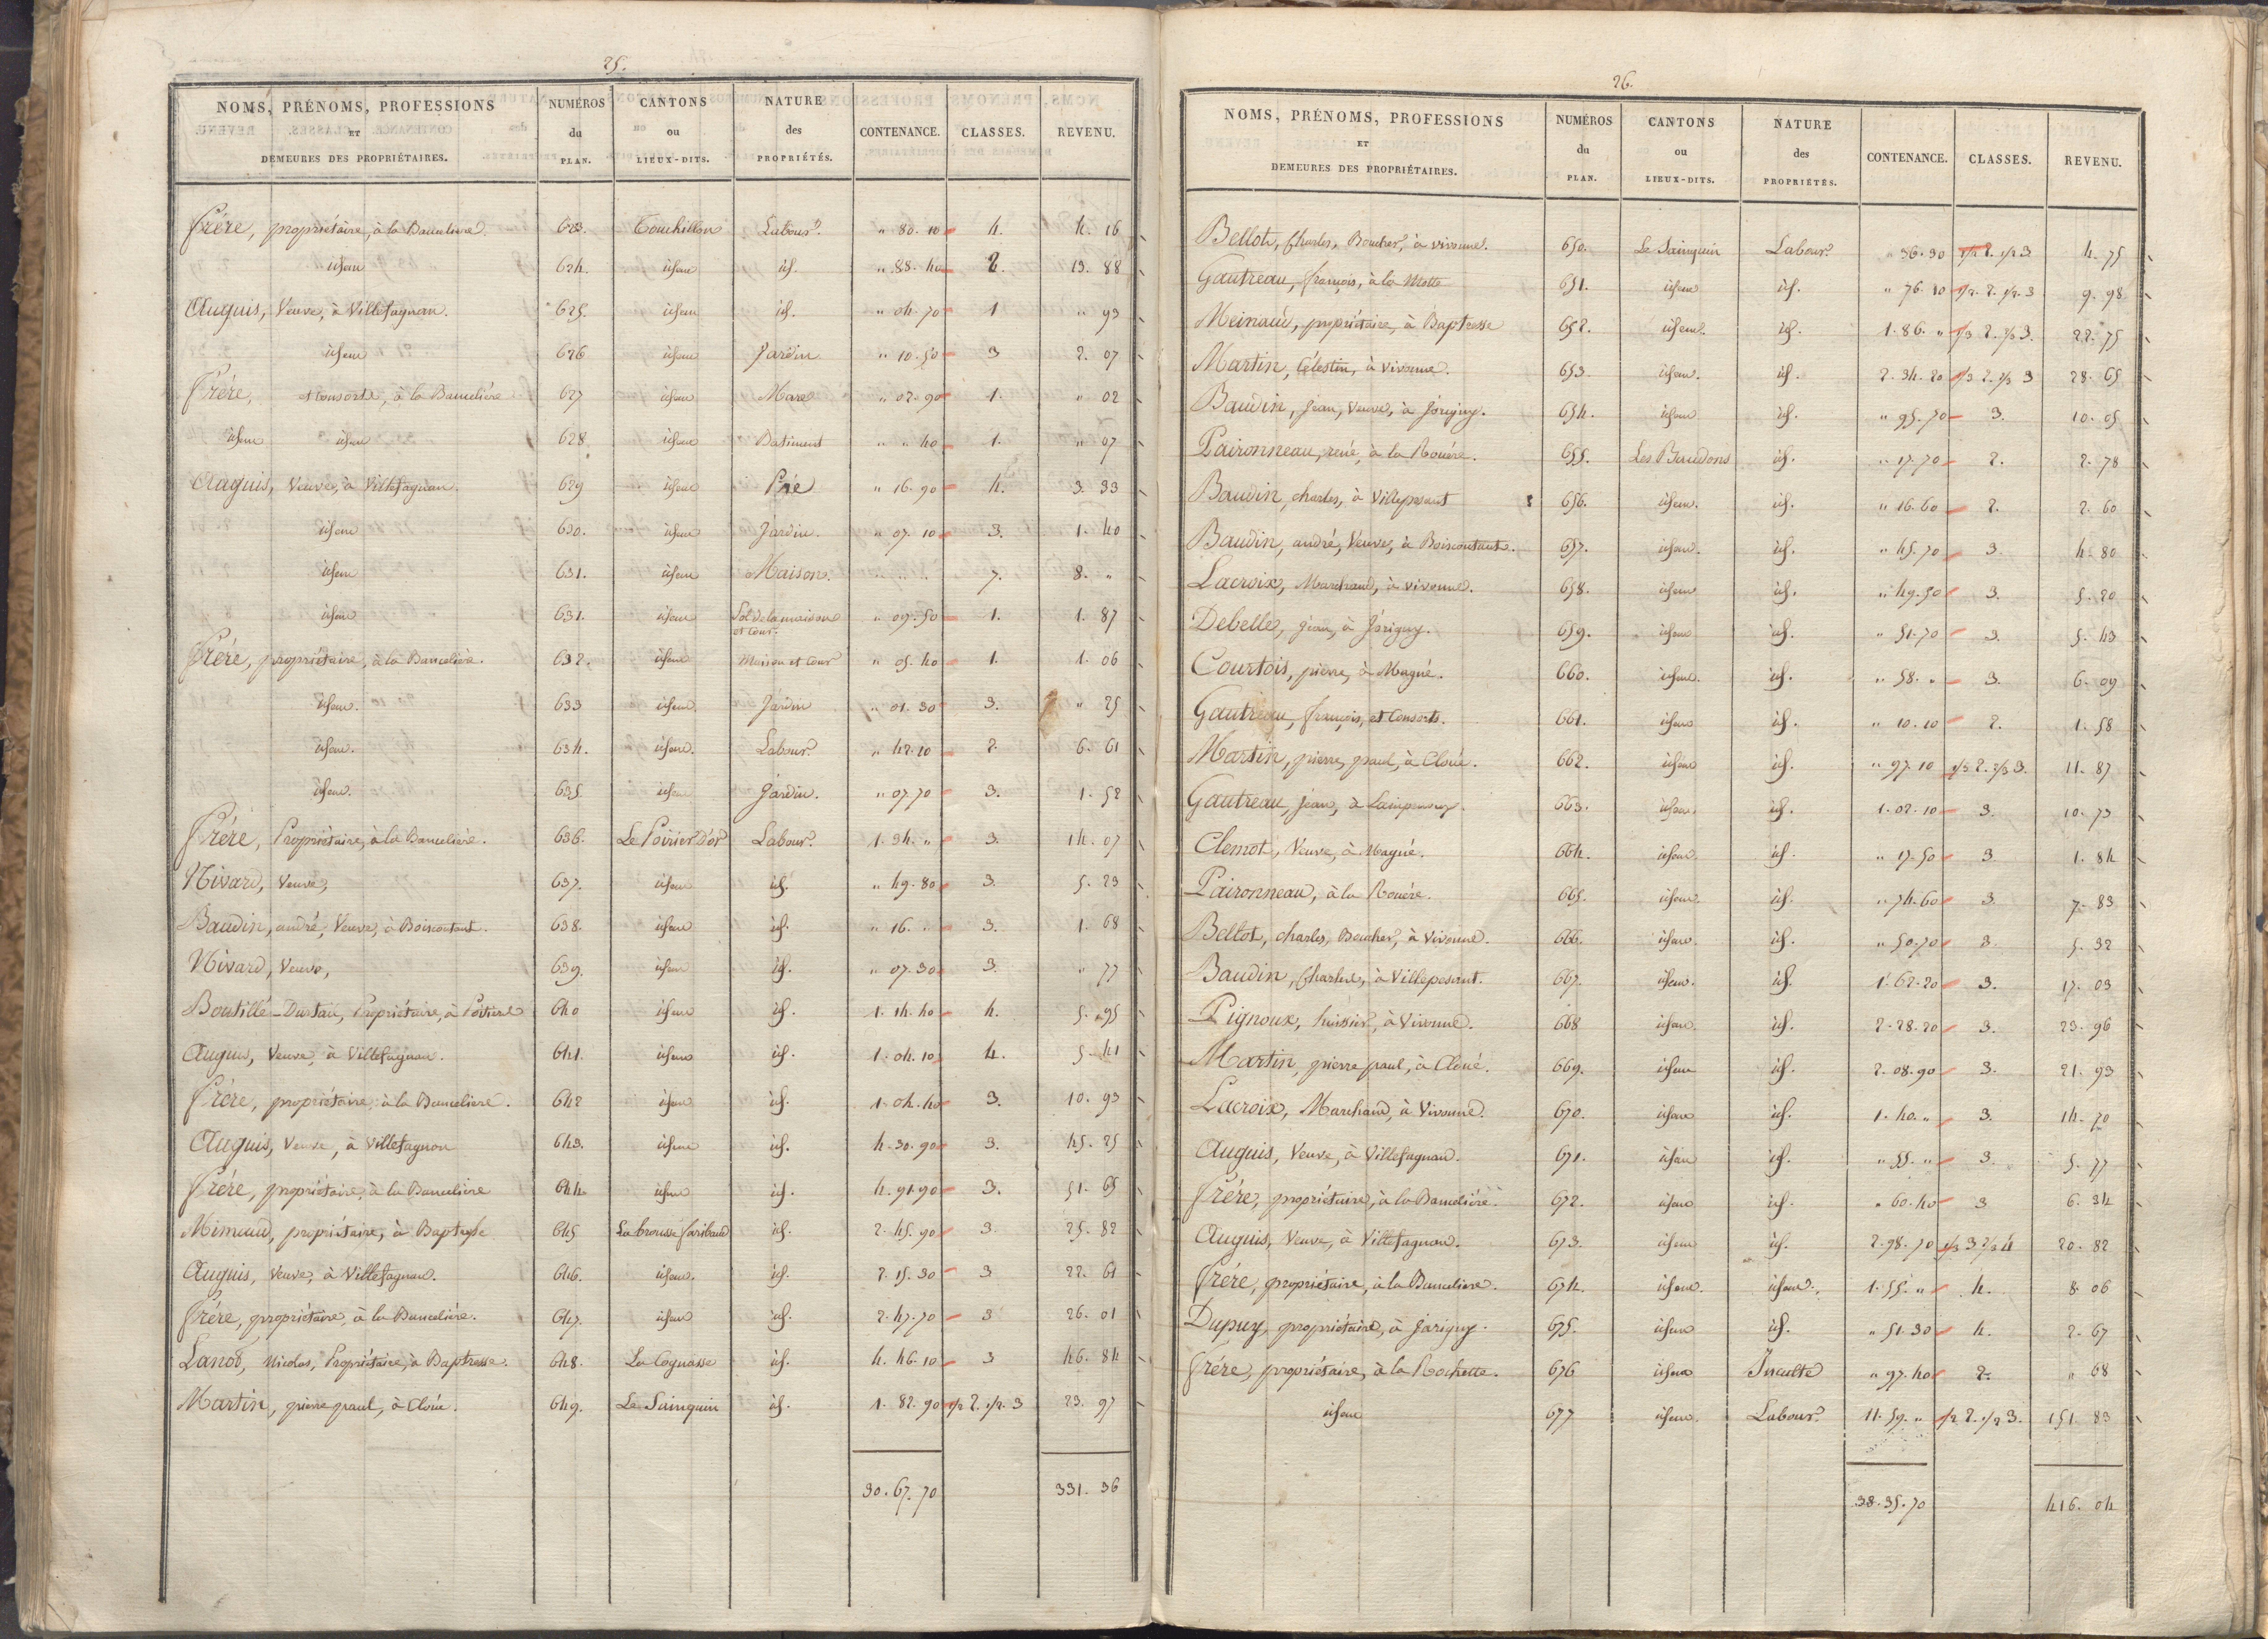 25.
NOMS, PRÉNOMS, PROFESSIONS ET DEMEURES DES PROPRIÉTAIRES. NUMÉROS du PLAN. CANTONS ou LIEUX-DITS. NATURE des PROPRIÉTÉS. CONTENANCE. CLASSES. REVENU.
frére, propriétaire, à la Banceliere. 623. Touchillon Labour? " 80. 10 4. 4. 16
idem 624. idem id. " 88. 40 2. 13. 88
Auguis, Veuve, à Villefagnan. 625. idem id. " 04. 70 1 " 93
idem 626 idem Jardin " 10. 50 3 2. 07
frére, et consorts, à la Banceliére 627 idem Mare " 02. 90 1. " 02
idem idem 628 idem Batiment " " 40 1. " 07
Auguis, Veuve, à Villefagnan. 629 idem Pré " 16. 90 4. 3. 33
idem 630. idem Jardin. " 07. 10 3. 1. 40
idem 631. idem Maison. " " " 7. 8. "
idem 631. idem Sol de la maison et cour. " 09. 50 1. 1. 87
frére, propriétaire, à la Banceliére. 632. idem Maison et Cour " 05. 40 1. 1. 06
idem. 633 idem Jardin " 01. 30 3. " 25
idem. 634. idem. Labour? " 42. 10 2. 6. 61
idem. 635. idem Jardin. " 07. 70 3. 1. 52
frére, Propriétaire, à la Banceliére. 636. Le Poirier D'or Labour? 1. 34. " 3. 14. 07
Nivard, Veuve, 637. idem id. " 49. 80 3. 5. 23
Baudin, andré, Veuve, à Boiscoutant. 638. idem id. " 16. " 3. 1. 68
Nivard, Veuve, 639. idem id. " 07. 30 3. " 77
Boutillé-Dustau, Propriétaire, à Poitiers 640 idem id. 1. 14. 40 4. 5. 95
Auguis, Veuve, à Villefagnan. 641. idem id. 1. 04. 10 4. 5. 41
frére, propriétaire, à la Banceliere. 642 idem id. 1. 04. 40 3. 10. 93
Auguis, Veuve, à Villefagnan 643. idem id. 4. 30. 90 3. 45. 25
frére, propriétaire, à la Banceliere 644 idem id. 4. 91. 90 3. 51. 65
Mimaud, propriétaire, à Baptresse 645 La brousse faribaud id. 2. 45. 90 3. 25. 82
Auguis, Veuve, à Villefagnan. 646. idem. id. 2. 15. 30 3 22. 61
frére, propriétaire, à la Banceliére. 647. idem id. 2. 47. 70 3 26. 01
Lanos, Nicolas, Propriétaire, à Baptresse. 648. La Cognasse id. 4. 46. 10 3 46. 84
Martin, pierre paul, à Cloüé. 649. Le Sainquin id. 1. 82. 90 1/2 2. 1/2. 3 23. 97
30. 67. 70 331. 36
26.
NOMS, PRÉNOMS, PROFESSIONS ET DEMEURES DES PROPRIÉTAIRES. NUMÉROS du PLAN. CANTONS ou LIEUX-DITS. NATURE des PROPRIÉTÉS. CONTENANCE. CLASSES. REVENU.
Bellot, Charles, Boucher, à vivonne. 650. Le Sainquin Labour? " 36. 30 1/2 2. 1/2 3. 4. 75
Gautreau, françois, à la Motte 651. idem id. " 76. 10 1/2. 2. 1/2. 3 9. 98
Meinaud, propriétaire, à Baptresse 652. idem. id. 1. 86. " 1/3 2. 2/3 3. 22. 75
Martin, Célestin, à vivonne. 653. idem. id. 2. 34. 20 1/3 2. 2/3 3 28. 65
Baudin, Jean, Veuve, à Jorigny. 654. idem id. " 95. 70 3. 10. 05
Paironneau, rené, à la Rouére. 655. Les Baudons id. " 17. 70 2. 2. 78
Baudin, charles, à Villepesant 656. idem. id. " 16. 60 2. 2. 60
Baudin, andré, Veuve, à Boiscoutant. 657. idem. id. " 45. 70 3. 4. 80
Lacroix, Marchand, à vivonne. 658. idem id. " 49. 50 3. 5. 20
Debelle, Jean, à Jorigny. 659. idem id. " 51. 70 3. 5. 43
Courtois, pierre, à Magné. 660. idem. id. " 58. " 3. 6. 09
Gautreau, françois, et Consorts. 661. idem id. " 10. 10 2. 1. 58
Martin, pierre, paul, à Cloüé. 662. idem id. " 97. 10 1/3 2. 2/3 3. 11. 87
Gautreau, Jean, à 663. idem. id. 1. 02. 10 3. 10. 73
Clemot, Veuve, à Magné. 664. idem id. " 17. 50 3 1. 84
Paironneau, à la Rouére. 665. idem. id. " 74. 60 3. 7. 83
Bellot, charles, Boucher, à Vivonne. 666. idem. id. " 50. 70 3 5. 32
Baudin, Charles, à Villepesant. 667. idem. id. 1. 62. 20 3. 17. 03
Pignoux, huissier, à Vivonne. 668 idem. id. 2. 28. 20 3. 23. 96
Martin, pierre paul, à Cloüé. 669. idem id. 2. 08. 90 3. 21. 93
Lacroix, Marchand, à Vivonne. 670. idem id. 1. 40. " 3. 14. 70
Auguis, Veuve, à Villefagnan. 671. idem id. " 55. " 3. 5. 77
frére, propriétaire, à la Banceliére 672. idem id. " 60. 40 3 6. 34
Auguis, Veuve, à Villefagnan. 673. idem id. 2. 98. 70 1/3 3 2/3 4 20. 82
frére, propriétaire, à la Banceliere. 674. idem. idem. 1. 55. " 4. 8. 06
Dupuy, propriétaire, à Jarigny. 675. idem id. " 51. 30 4. 2. 67
frére, propriétaire, à la Rochette. 676 idem Inculte " 97. 40 2. " 68
idem 677 idem. Labour? 11. 59. " 1/2 2. 1/2 3. 151. 83
38. 35. 70 416. 04